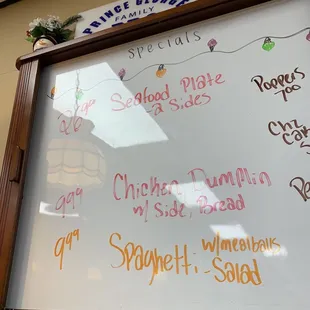 PRINCE GEORGE
FAMILY
specials
Seafood Plate
2 Sides
Poppers
7.00
999
Chicken Dumplin
w/ Side, Bread
999
Spaghetti w/meatballs
-Salad